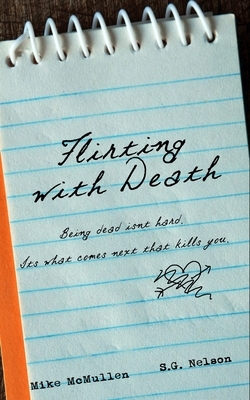 Flirting
with Death
Being dead isnt hard.
Its what comes next that kills you.
Mike McMullen
S.G. Nelson